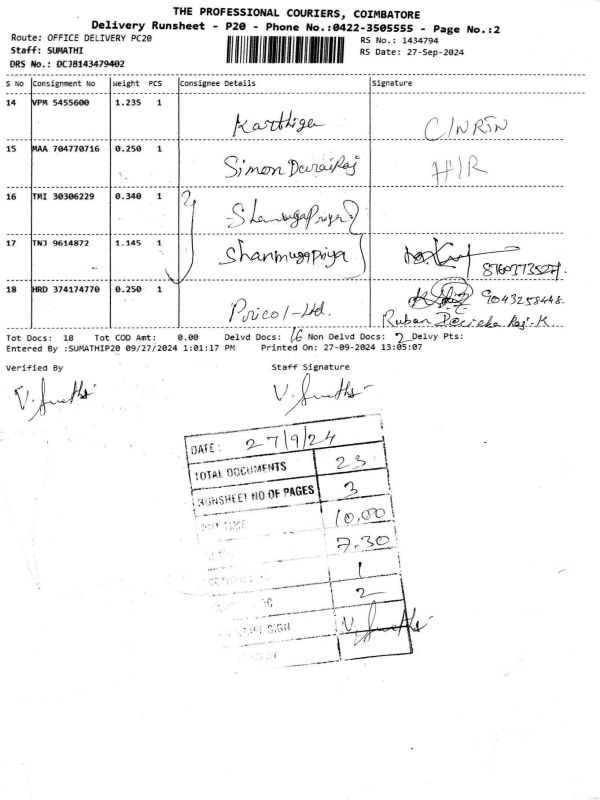 THE PROFESSIONAL COURIERS, COIMBATORE
Delivery Runsheet - P20 - Phone No.:0422-3505555 - Page No.:2
Route: OFFICE DELIVERY PC20 RS No.: 1434794
Staff: SUMATHI RS Date: 27-Sep-2024
DRS No.: DCJB143479402
S No Consignment No Weight PCS Consignee Details Signature
14 VPM 5455600 1.235 1 Karthiga C/NRTN
15 MAA 704770716 0.250 1 Simon Durairaj H/R
16 TMI 30306229 0.340 1 Shanmugapriya
17 TNJ 9614872 1.145 1 Shanmugapriya
18 HRD 374174770 0.250 1 Pricol-Ltd. 9043258448.
Ruban
Tot Docs: 18 Tot COD Amt: 0.00 Delvd Docs: 16 Non Delvd Docs: 2 Delvy Pts:
Entered By :SUMATHIP20 09/27/2024 1:01:17 PM Printed On: 27-09-2024 13:05:07
Verified By Staff Signature
V. Sumathi V. Sumathi
DATE: 27/9/24
TOTAL DOCUMENTS 23
RUNSHEET NO OF PAGES 3
OUT TIME 10.00
7.30
1
2
SIGN V. Sumathi